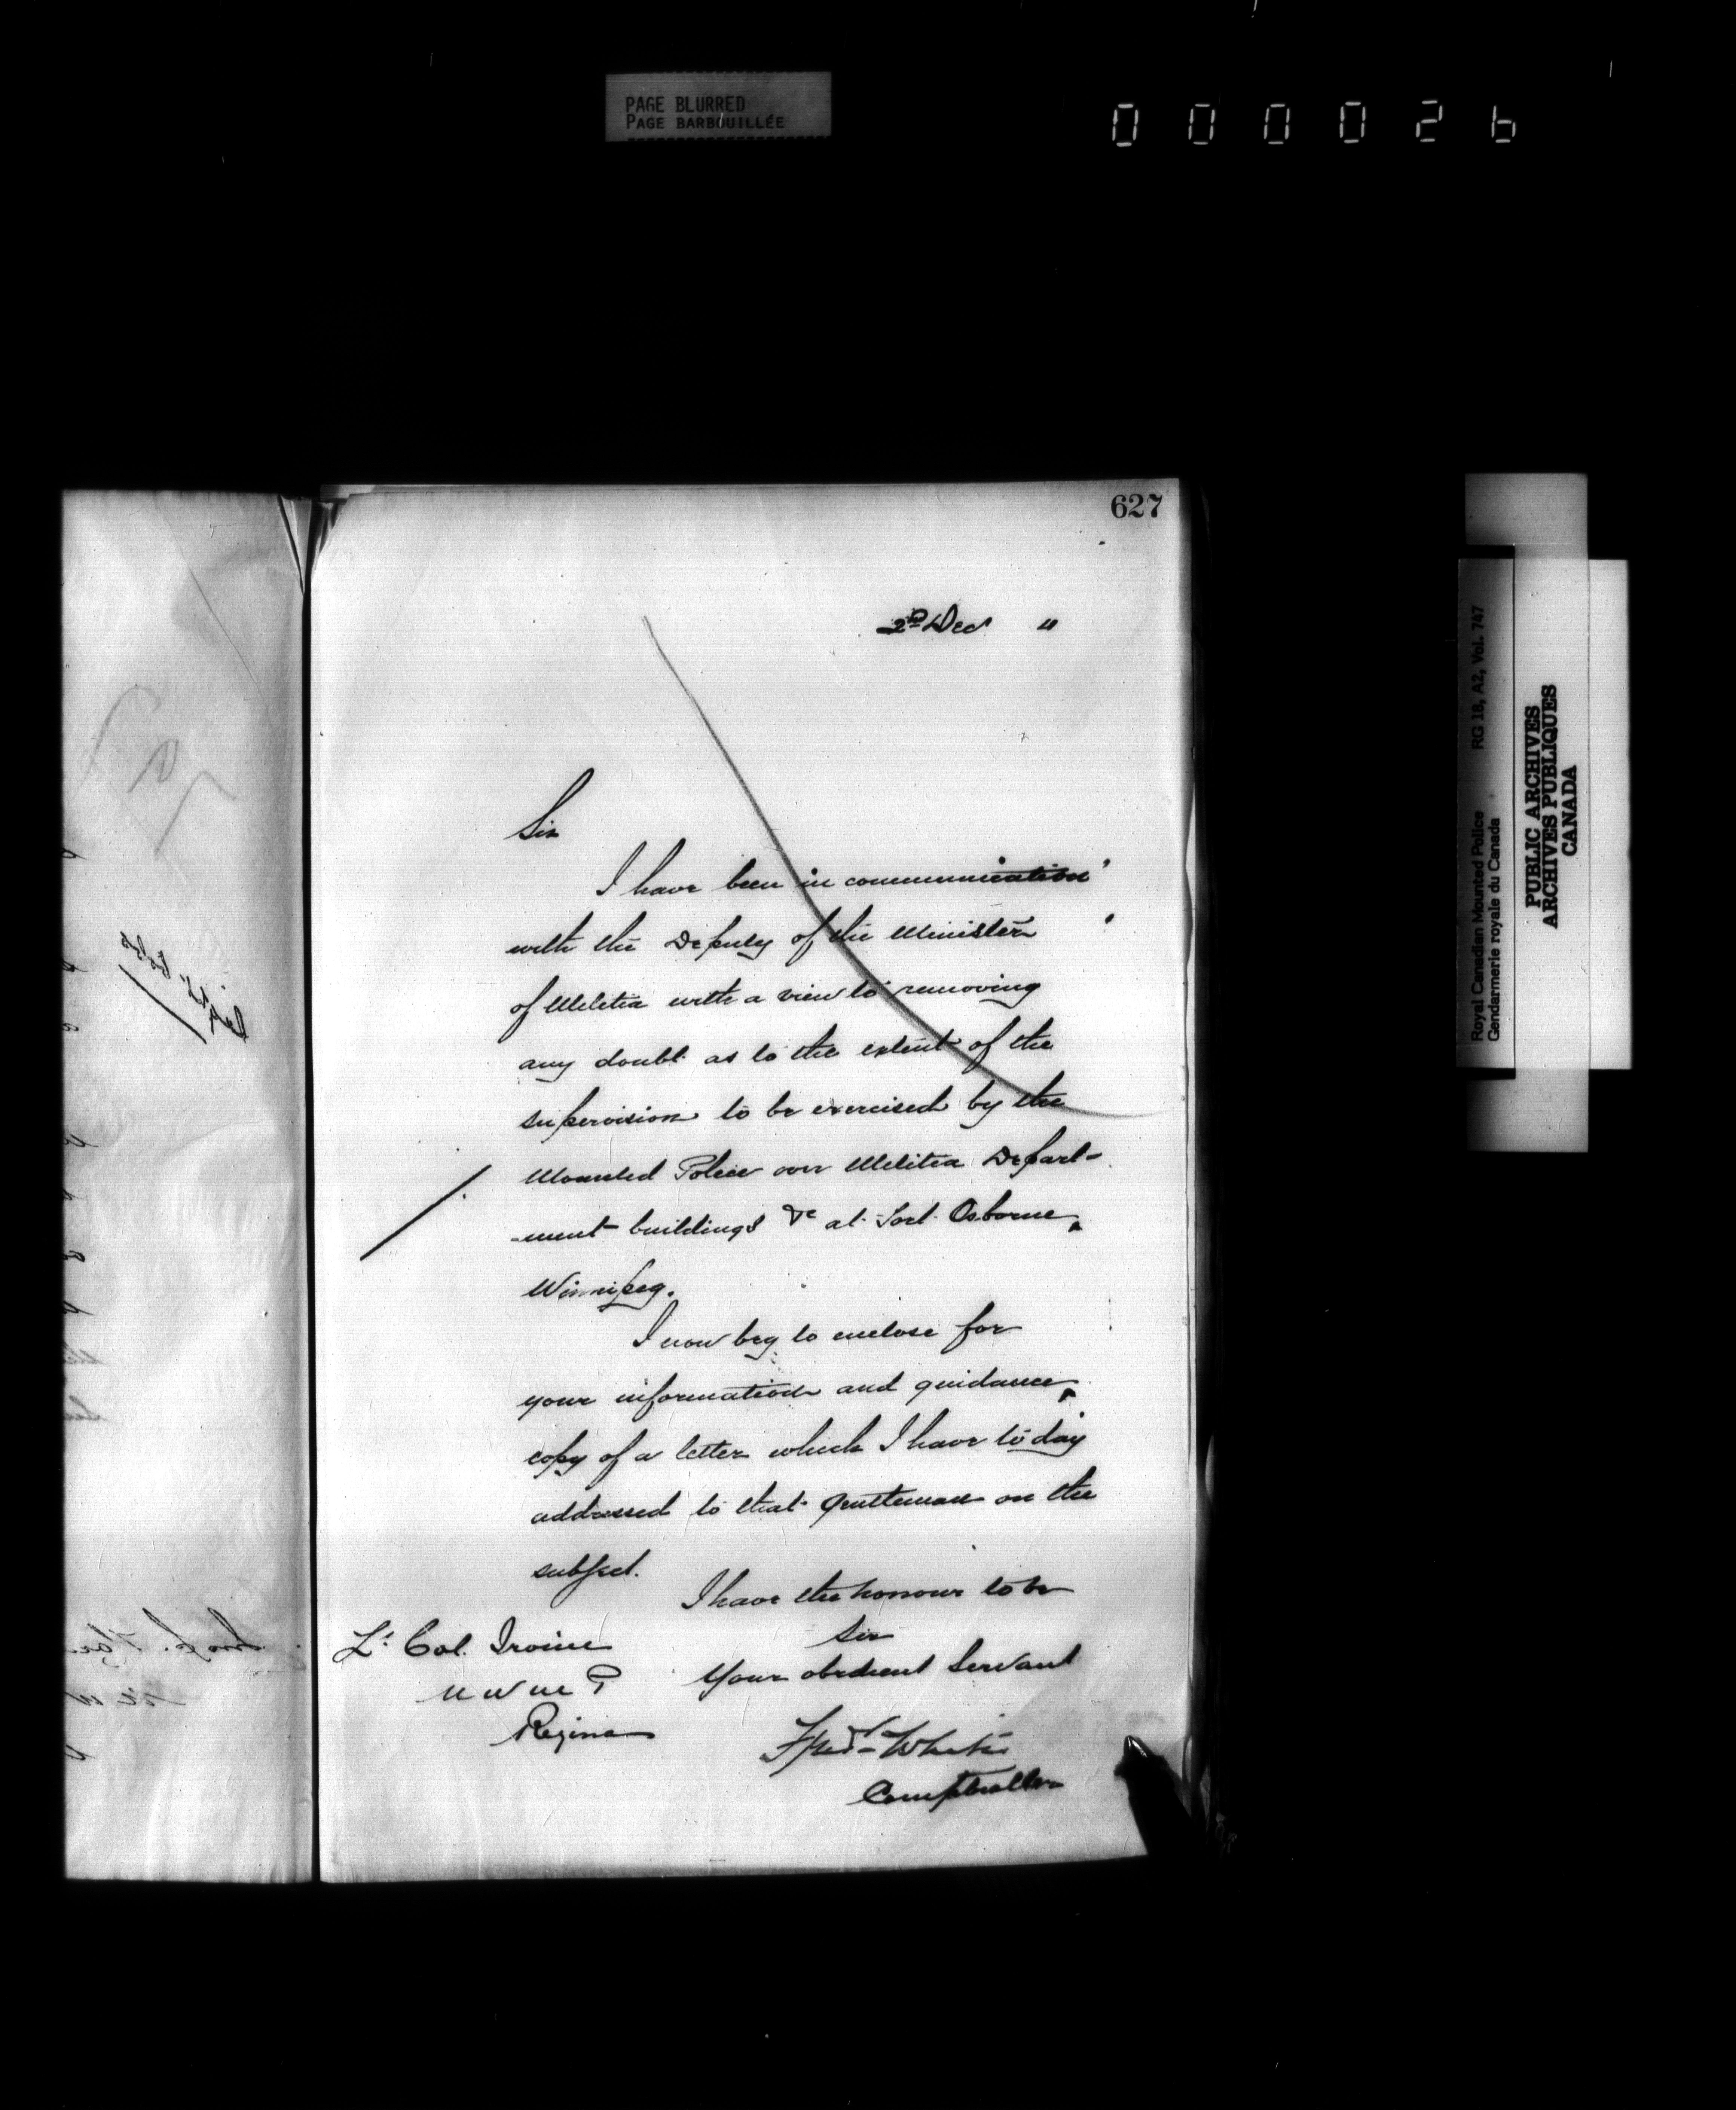 PAGE BLURRED
PAGE BARBOUILLÉE
000026
627
2nd Dec "
Sir
I have been in communication
with the Deputy of the Minister
of Militia with a view to removing
any doubt as to the extent of the
supervision to be exercised by the
Mounted Police over Militia Depart-
-ment buildings &c at Fort Osborne,
Winnipeg.
I now beg to enclose for
your information and guidance,
copy of a letter which I have to day
addressed to that Gentleman on the
subject.
I have the honour to be
Sir
Your obedient Servant
Fred White
Comptroller
Lt Col. Irvine
N W M P
Regina
Royal Canadian Mounted Police RG 18, A2, Vol. 747
Gendarmerie royale du Canada
PUBLIC ARCHIVES
ARCHIVES PUBLIQUES
CANADA